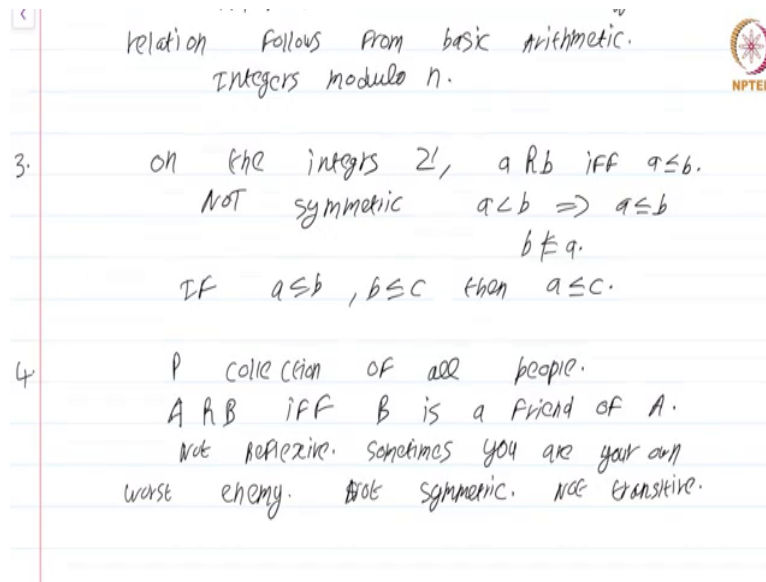 relation follows from basic Arithmetic.
Integers modulo n.
NPTEL
3. on the integrs Z, a R b iff a ≤ b.
NOT symmetric a < b ⇒ a ≤ b
b ≰ a.
If a ≤ b, b ≤ c then a ≤ c.
4. P collection of all people.
A R B iff B is a friend of A.
Not Reflexive. Sometimes you are your own
worst enemy. Not symmetric. Not transitive.